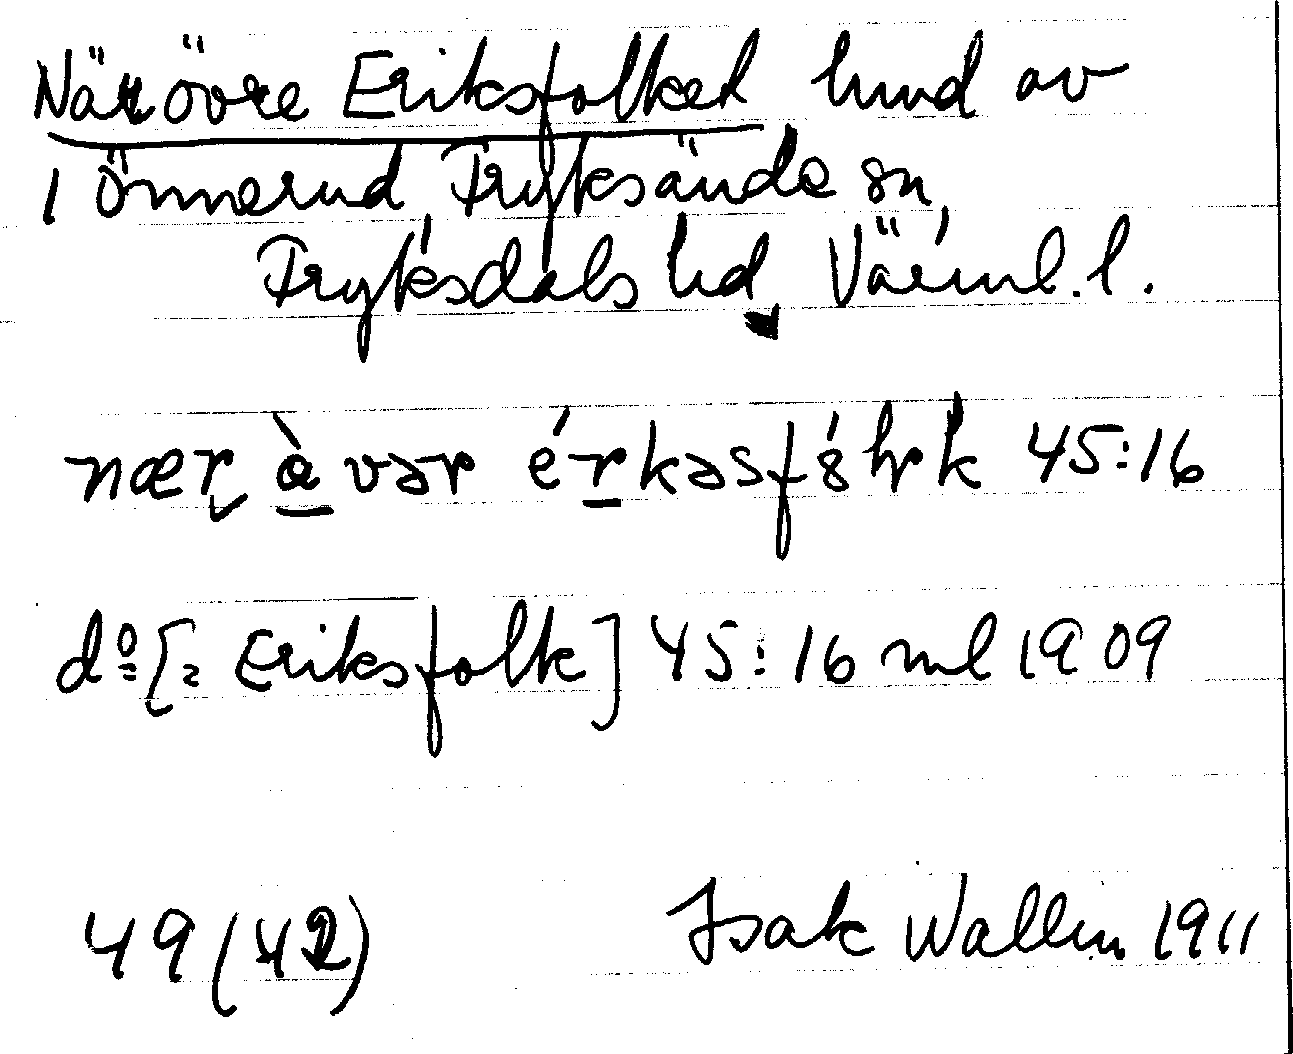 När övre Eriksfolket hmd av
i Önnerud, Fryksände sn,
Fryksdals hd, Värml. l.
nær å̀vər érkəsfó 45:16
do [= Eriksfolk] 45:16 ml 1909
49 (42) Isak Wallin 1911